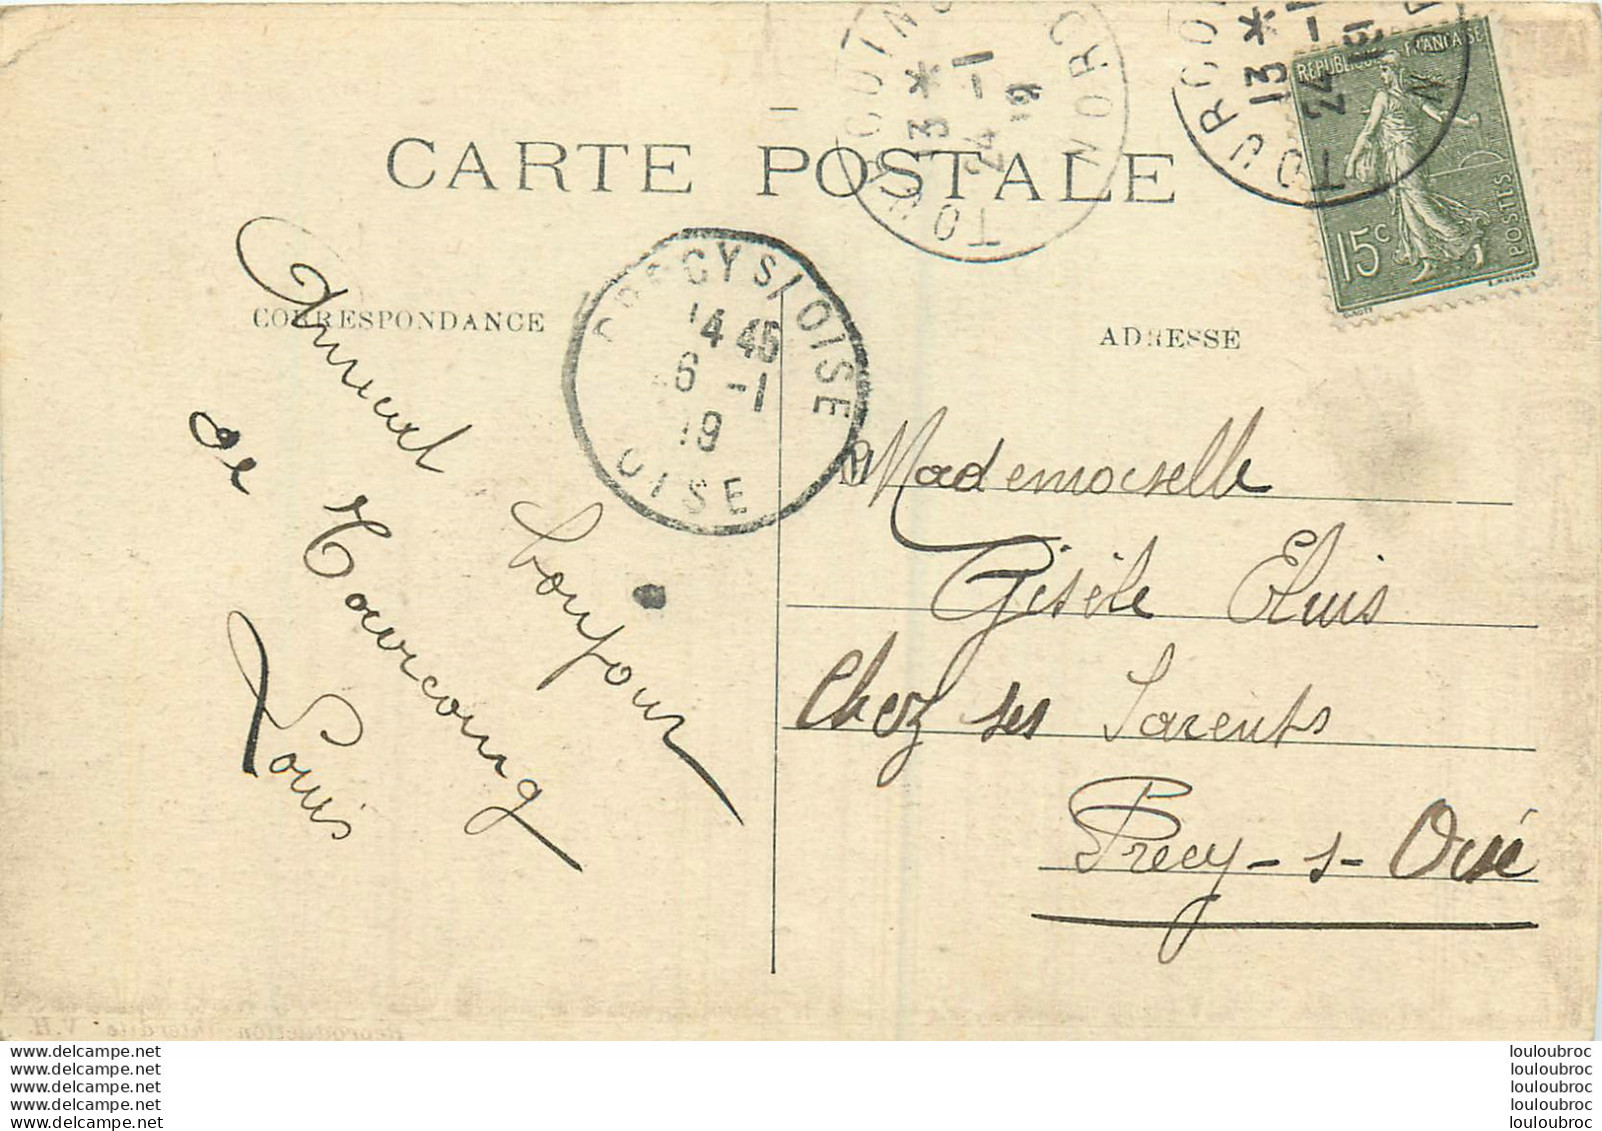 CARTE POSTALE
CORRESPONDANCE
ADRESSE
REPUBLIQUE FRANCAISE
15c
POSTES
TOURCOING
13 *
24 -1
19
NORD
TOURCO
13 *
24 -1
19
NO
PRECY S/ OISE
14 45
6 -1
19
OISE
Amical bonjour
de Tourcoing
Louis
Mademoiselle
Gisèle Eluis
Chez ses Parents
Precy-s-Oise
Reproduction interdite V.H.
www.delcampe.net
www.delcampe.net
www.delcampe.net
www.delcampe.net
www.delcampe.net
louloubroc
louloubroc
louloubroc
louloubroc
louloubroc